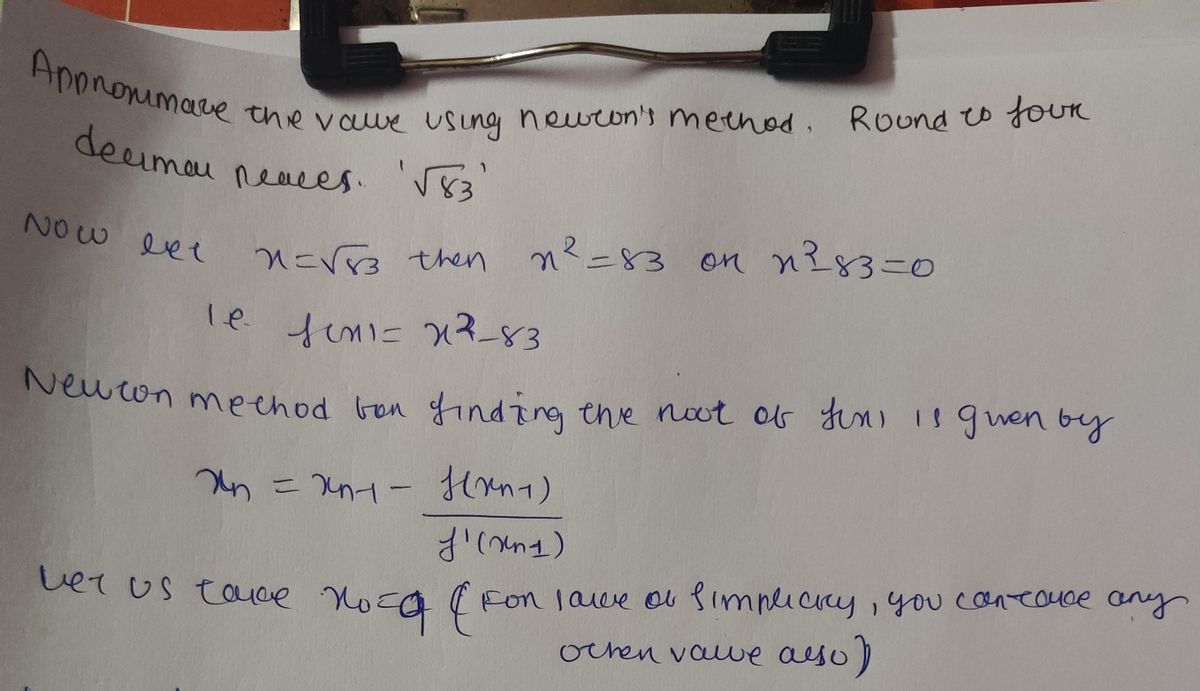 Approximate the value using newton's method. Round to four
decimal places. '√83'
Now let x=√83 then x²=83 or x²-83=0
i.e. f(x)= x²-83
Newton method for finding the root of f(x) is given by
xn = xn-1 - f(xn-1)
f'(xn-1)
Let us take x0=9 (For sake of simplicity, you can take any
other value also)